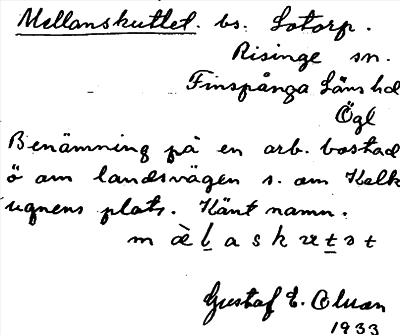 Mellanskuttet. bs. Lotorp.
Risinge sn.
Finspånga Läns hd
Ögl
Benämning på en arb. bostad
ö om landsvägen s. om Kalk
ugnens plats. Känt namn.
Gustaf E. Olsson
1933